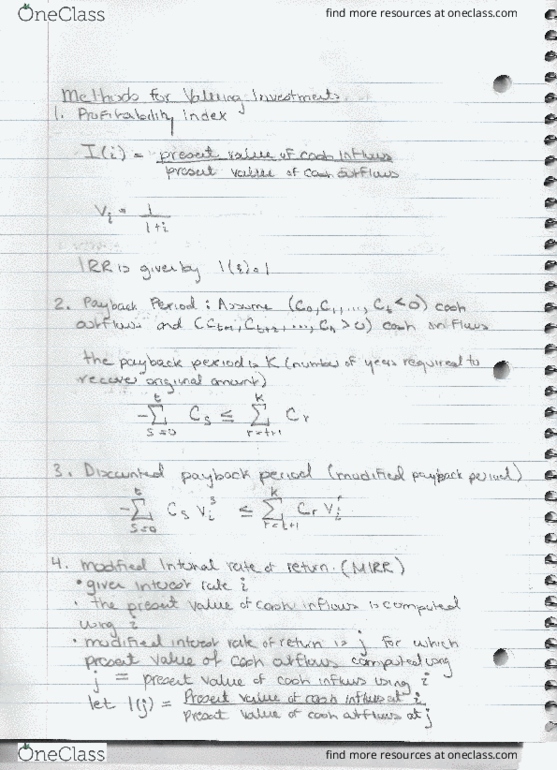 OneClass
find more resources at oneclass.com
Methods for Valuing Investments.
1. Profitability index
I(i) = present value of cash inflows
present value of cash outflows
Vi = 1
1+i
IRR is given by I(i)=1
2. Payback Period: Assume (C0,C1,..., Ct<0) cash
outflows and (Ct+1,Ct+2,...,Cn>0) cash inflows
the payback period is K (number of years required to
recover original amount)
t K
-Σ Cs ≤ Σ Cr
s=0 r=t+1
3. Discounted payback period (modified payback period)
t K
-Σ Cs Vi^s ≤ Σ Cr Vi^r
s=0 r=t+1
4. modified Internal rate of return. (MIRR)
• given interest rate i
• the present value of cash inflows is computed
using i
• modified interest rate of return is j for which
present value of cash outflows computed using
j = present value of cash inflows using i
let I(j) = Present value of cash inflows at i
Present value of cash outflows at j
OneClass
find more resources at oneclass.com